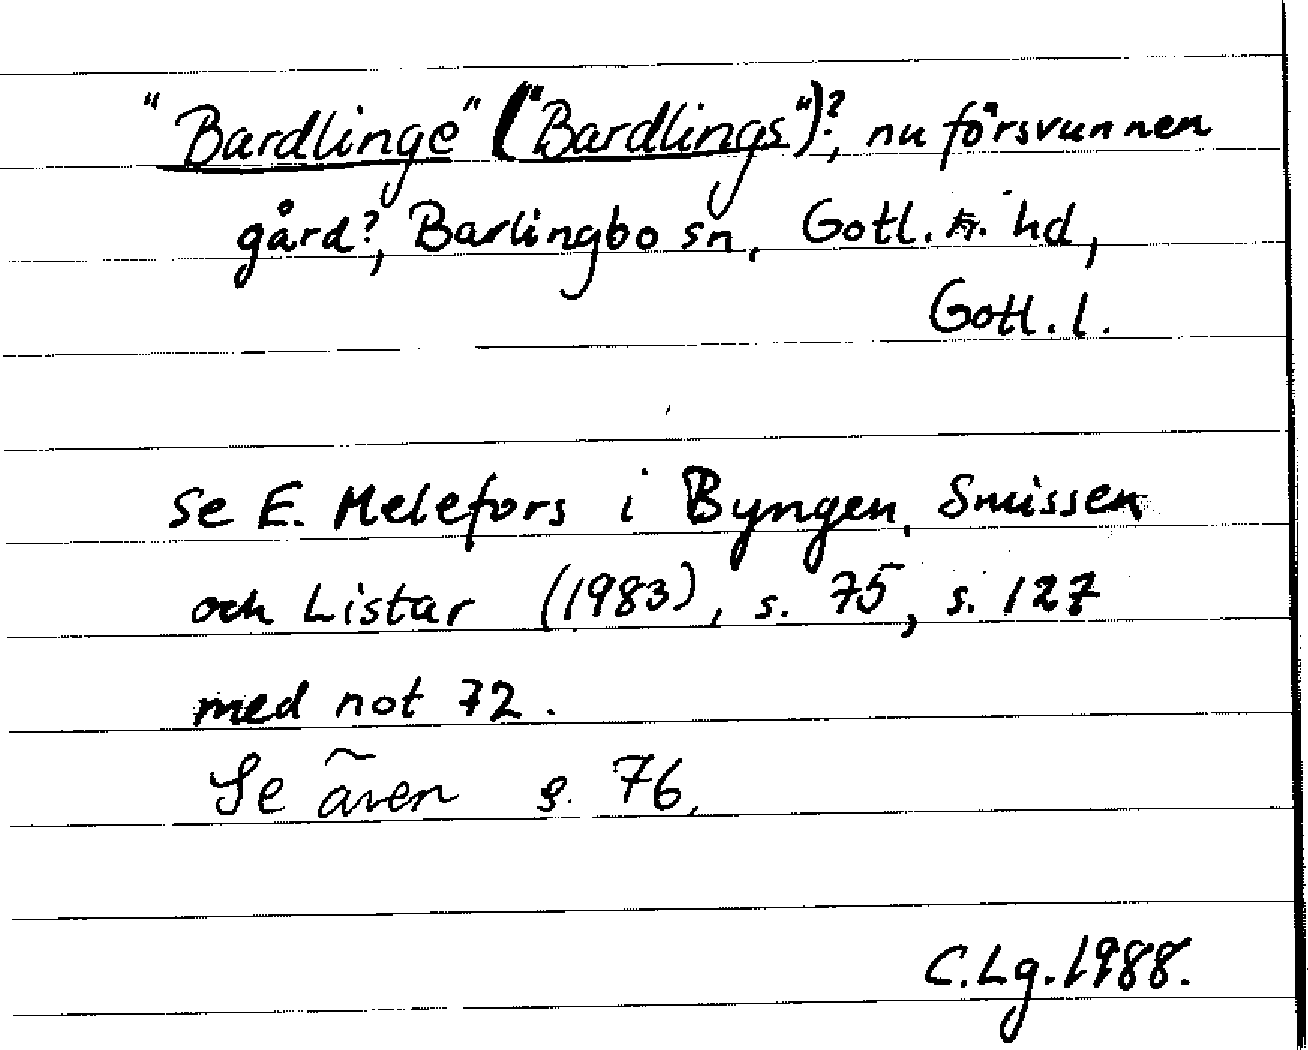 "Bardlinge" ("Bardlings")?, nu försvunnen
gård?, Barlingbo sn, Gotl. n. hd,
Gotl. l.
Se E. Melefors i Byngen, Smissen
och Listar (1983), s. 75, s. 127
med not 72.
Se även s. 76.
C.Lg. 1988.